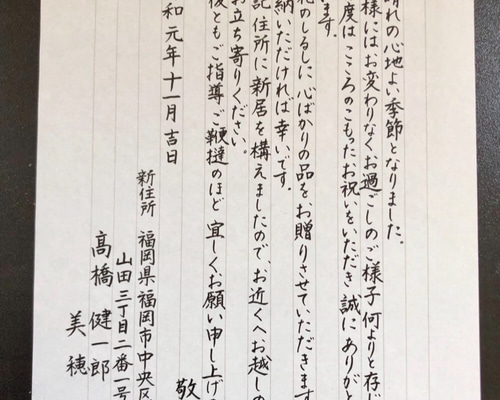 晴れの心地よい季節となりました。
様にはお変わりなくお過ごしのご様子 何よりと存じ
度はこころのこもったお祝いをいただき 誠にありがと
ます。
礼のしるしに心ばかりの品をお贈りさせていただきます
納いただければ幸いです。
記住所に新居を構えましたので、お近くへお越しの
お立ち寄りください。
後ともご指導ご鞭撻のほど 宜しくお願い申し上げ
敬
和元年十一月吉日
新住所 福岡県福岡市中央区
山田三丁目二番一号
高橋 健一郎
美穂